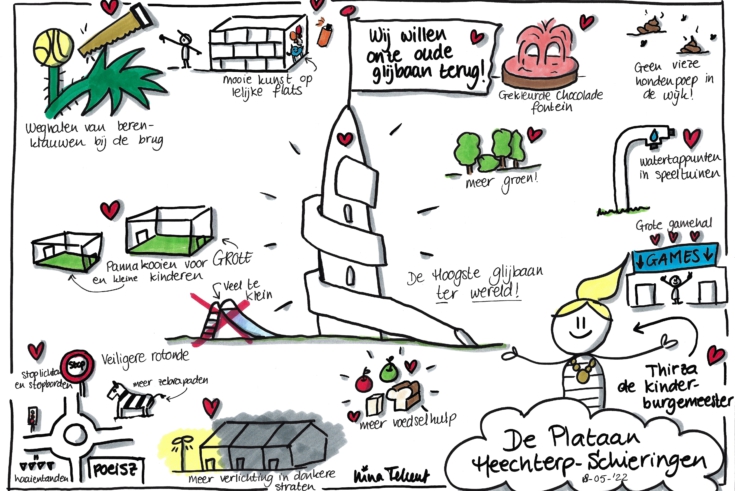 Wij willen
onze oude
glijbaan terug!
mooie kunst op
lelijke flats
Weghalen van beren-
klauwen bij de brug
Gekleurde chocolade
fontein
Geen vieze
hondenpoep in
de wijk!
meer groen!
watertappunten
in speeltuinen
Grote gamehal
GAMES
Pannakooien voor GROTE
en kleine kinderen
veel te
klein
De Hoogste glijbaan
ter wereld!
Thirza
de kinder-
burgemeester
Veiligere rotonde
stoplichten
en stopborden
Stop
meer zebrapaden
haaientanden
POEISZ
meer voedselhulp
meer verlichting in donkere
straten
De Plataan
Heechterp-Schieringen
18-05-'22